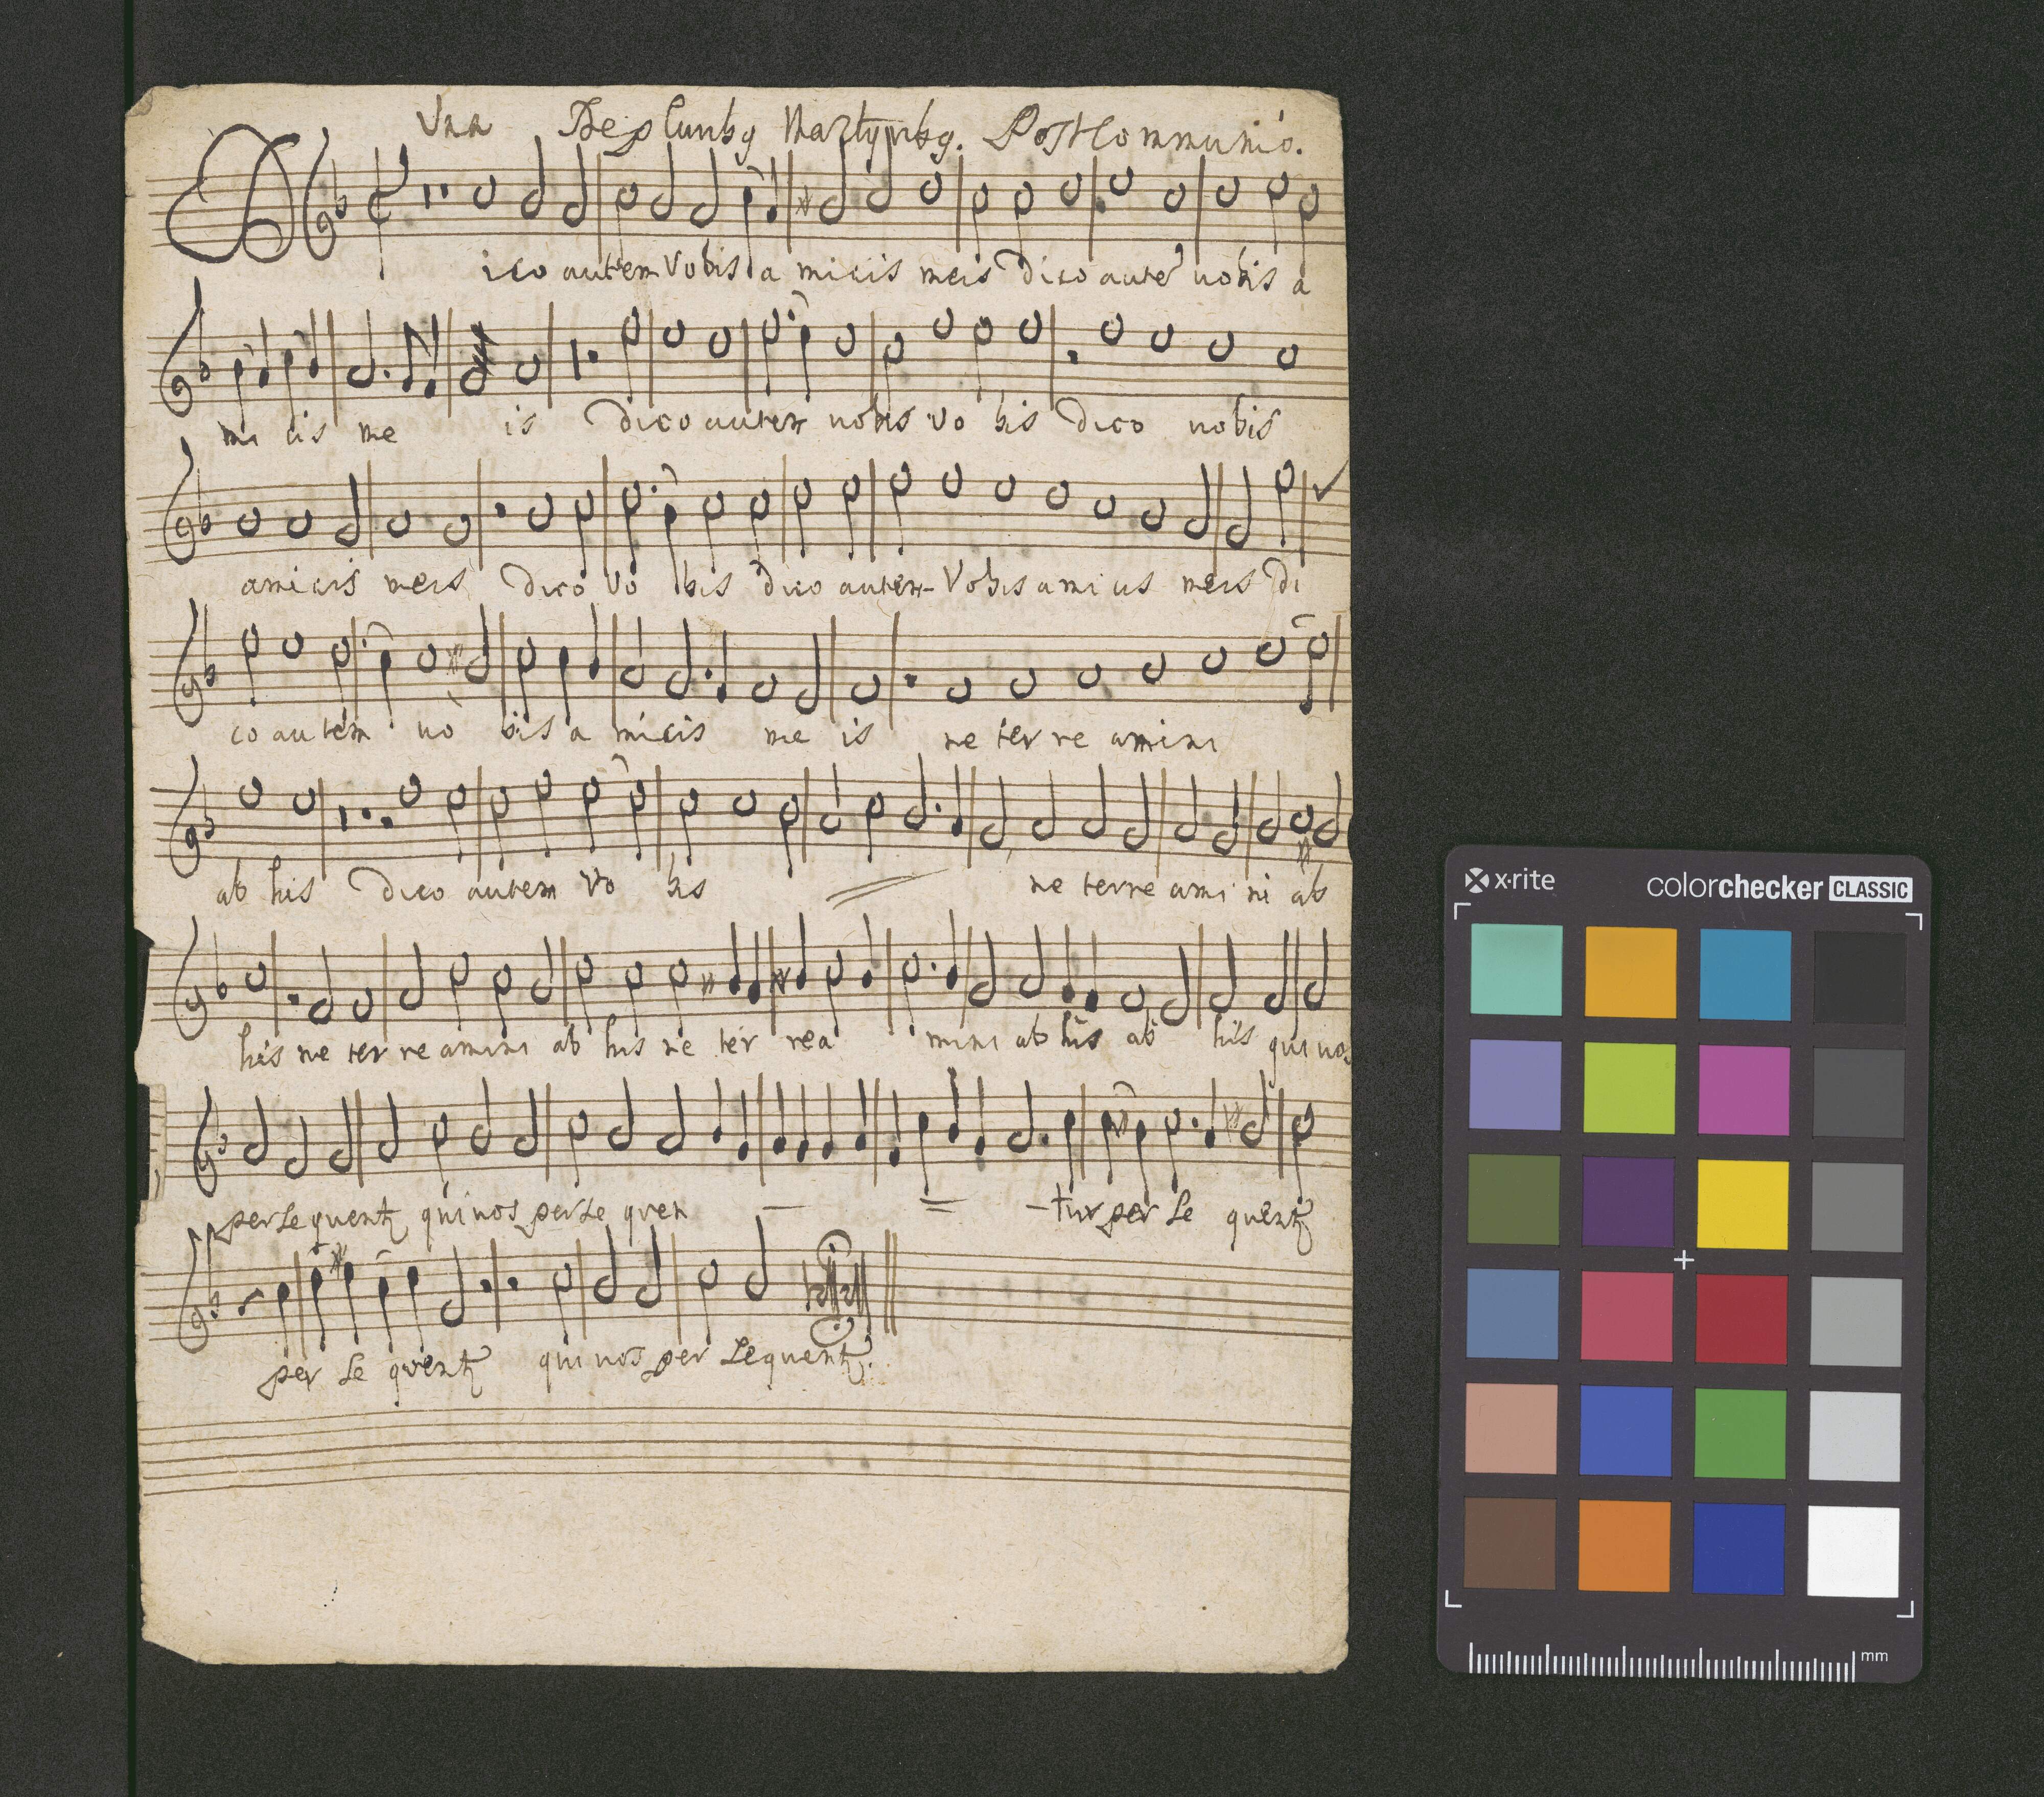 Una De pluribg Martyribg. PostCommunio.
Dico autem Vobis a micis meis Dico aute vobis a
mi cis me is Dico autem vobis vo bis Dico vobis
amicis meis Dico Vo bis dico autem Vobis ami cis meis Di
co autem vo bis a micis me is ne ter re amini
ab his Dico autem Vo bis ne terre ami ni ab
his ne ter re amini ab his ne ter rea mini ab his ab his qui vos
perse quentz qui vos perse quen - = - tur per se quentz
per se quentz qui vos per sequentz.
x-rite colorchecker CLASSIC
mm